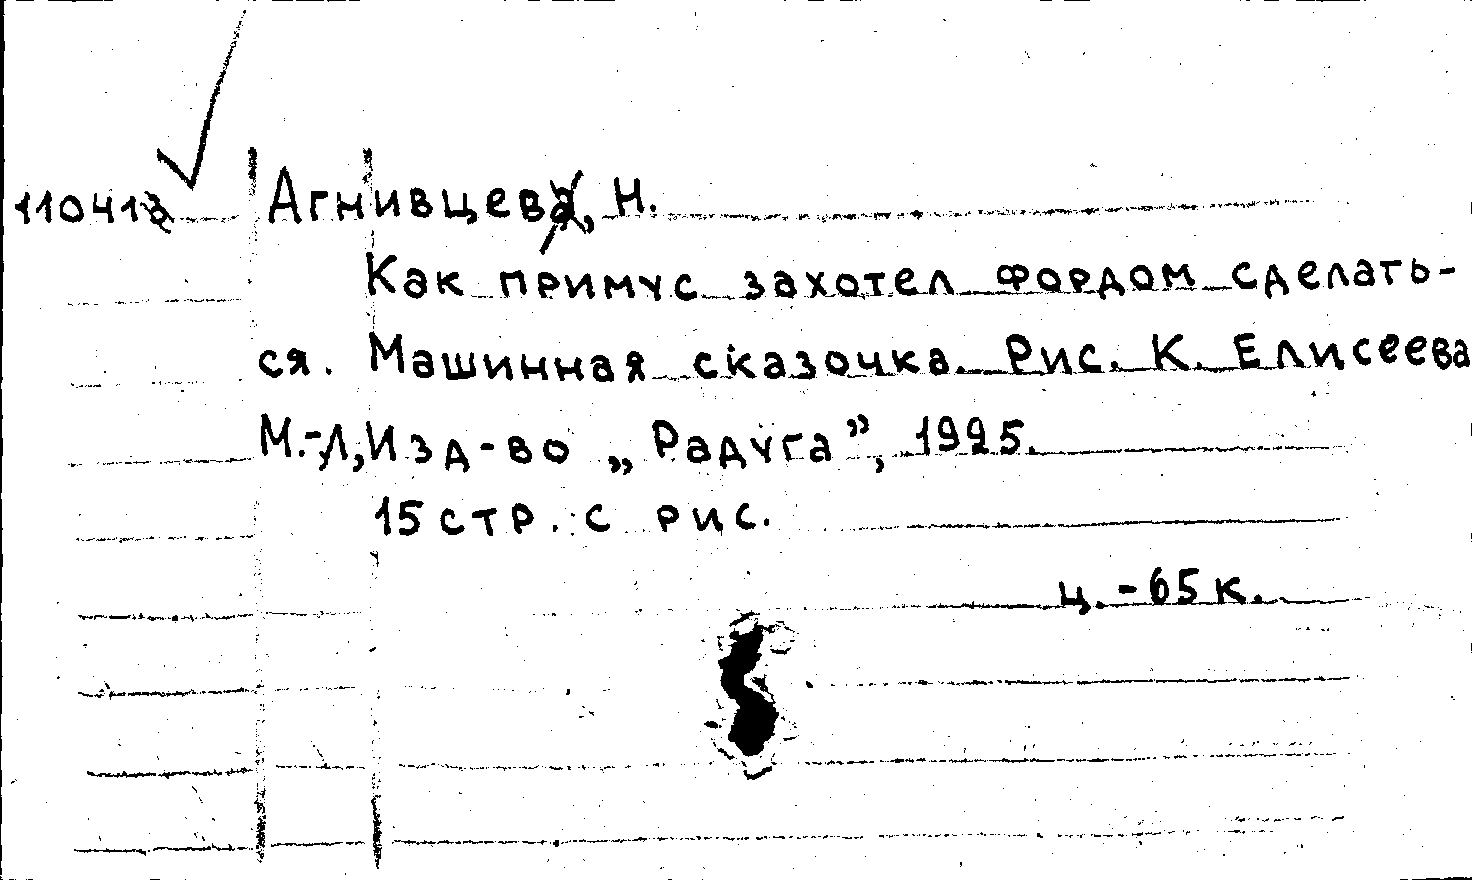 110413 Агнивцев, Н.
Как примус захотел фордом сделать-
ся. Машинная сказочка. Рис. К. Елисеева
М.-Л, Изд-во „Радуга”, 1925.
15 стр. с рис.
ц. - 65 к.